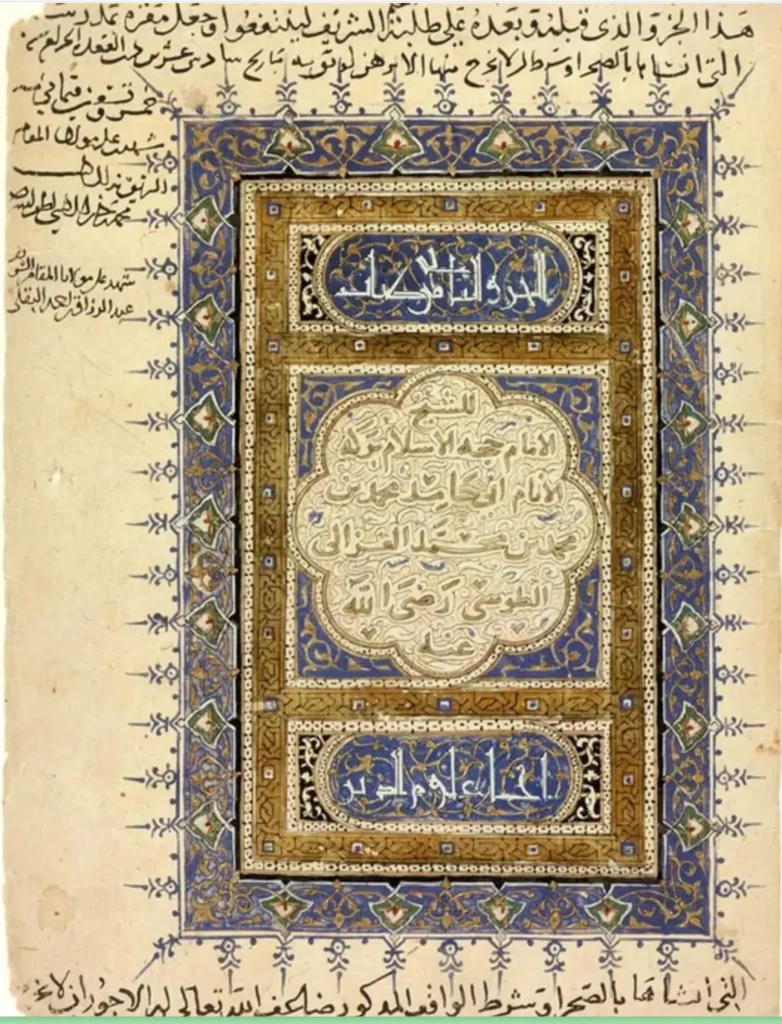 هذا الجزو والذى قبله وبعده على طلبة العلم الشريف لينتفعوا وجعل مقره بمدرسته
التى انشاها بالصحرا وشرط ان لا يخرج منها الا برهن يوثق به بتاريخ سادس عشر ذى القعدة الحرام سنه
خمس وتسعين وثمانمايه
شهد على مولانا المقام
الشريف بذلك
محمد
شهد على مولانا المقام الشريف
عبد الرزاق احمد البقلى
الجزو من كتاب
للشيخ
الامام حجه الاسلام بركه
الانام ابى حامد محمد بن
محمد بن محمد الغزالى
الطوسى رضى الله
عنه
احيا علوم الدين
التى انشاها بالصحرا وشرط الواقف المذكور ضاعف الله تعالى له الاجور ان لا